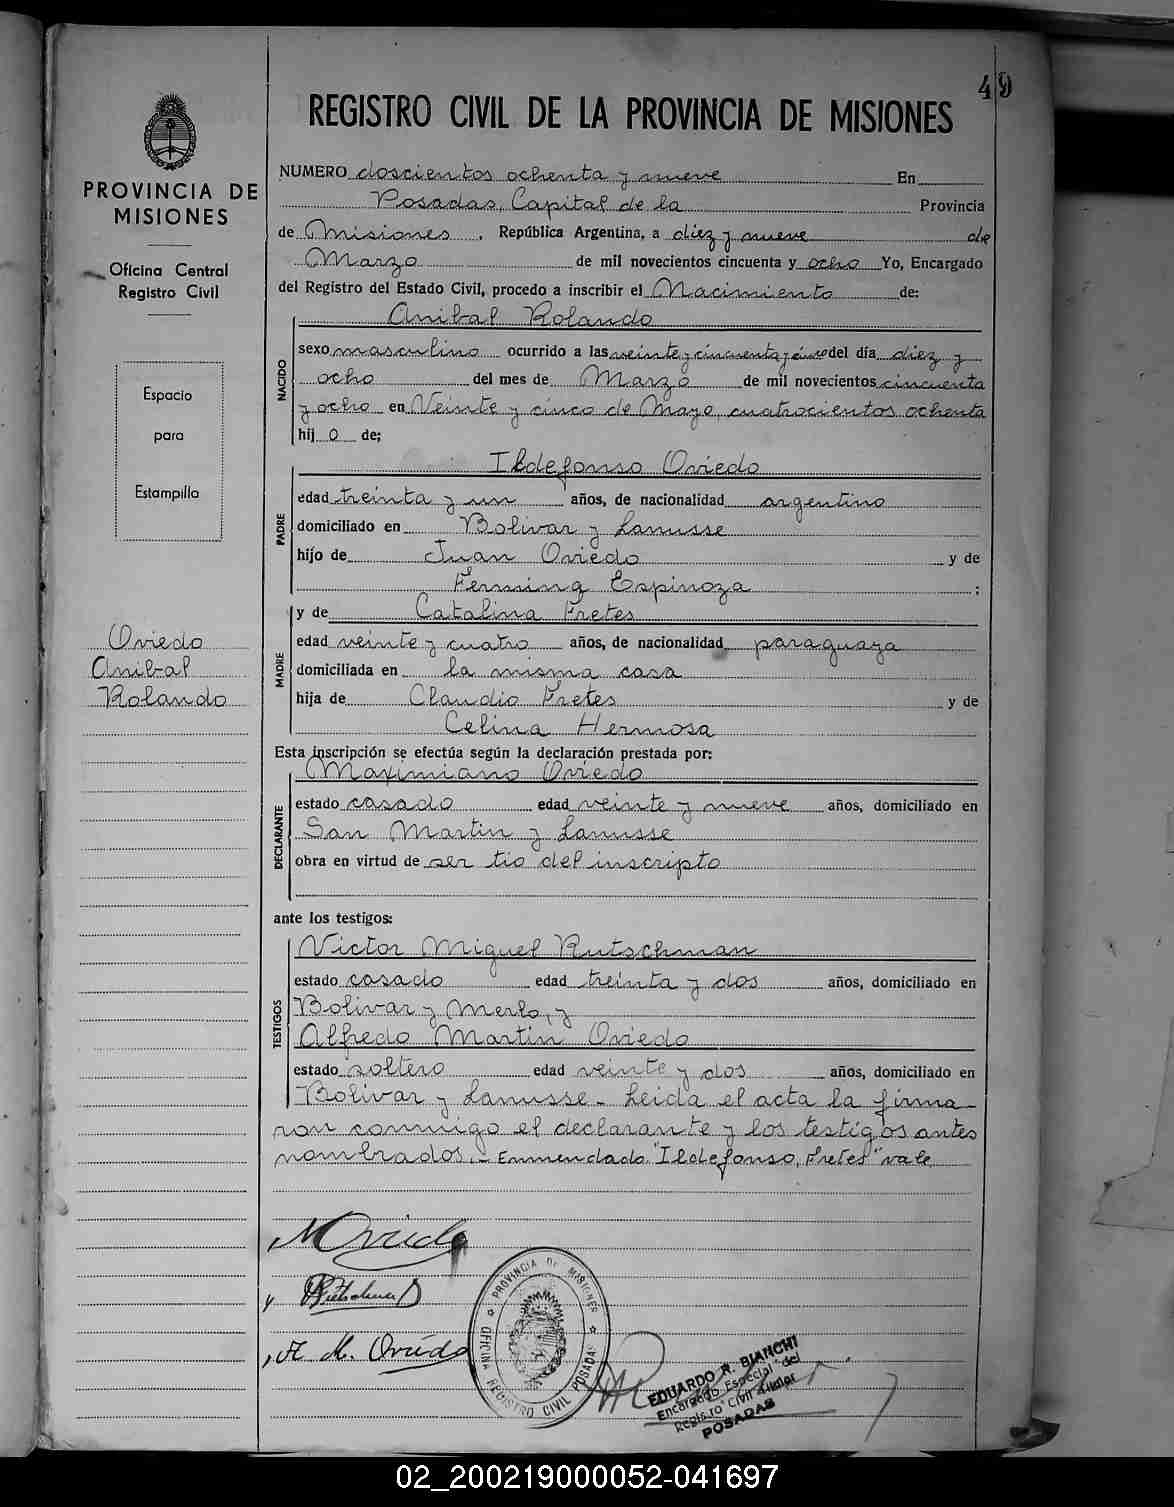 49
REGISTRO CIVIL DE LA PROVINCIA DE MISIONES
PROVINCIA DE
MISIONES
Oficina Central
Registro Civil
Espacio
para
Estampilla
Oviedo
Anibal
Rolando
NUMERO doscientos ochenta y nueve En
Posadas, Capital de la Provincia
de Misiones, República Argentina, a diez y nueve de
Marzo de mil novecientos cincuenta y ocho Yo, Encargado
del Registro del Estado Civil, procedo a inscribir el Nacimiento de:
Anibal Rolando
NACIDO
sexo masculino ocurrido a las veinte y cincuenta y cinco del día diez y
ocho del mes de Marzo de mil novecientos cincuenta
y ocho en Veinte y cinco de Mayo, cuatrocientos ochenta
hij o de;
Ildefonso Oviedo
PADRE
edad treinta y un años, de nacionalidad argentino
domiciliado en Bolivar y Lanusse
hijo de Juan Oviedo y de
Fermina Espinoza ;
y de Catalina Fretes
MADRE
edad veinte y cuatro años, de nacionalidad paraguaya
domiciliada en la misma casa
hija de Claudio Fretes y de
Celina Hermosa
Esta inscripción se efectúa según la declaración prestada por:
Maximiano Oviedo
DECLARANTE
estado casado edad veinte y nueve años, domiciliado en
San Martin y Lanusse
obra en virtud de ser tio del inscripto
ante los testigos:
Victor Miguel Rutschman
TESTIGOS
estado casado edad treinta y dos años, domiciliado en
Bolivar y Merlo, y
Alfredo Martin Oviedo
estado soltero edad veinte y dos años, domiciliado en
Bolivar y Lanusse - Leida el acta la firma
ron conmigo el declarante y los testigos antes
nombrados. - Enmendado "Ildefonso, Fretes" vale
M Oviedo
y
A. M. Oviedo
PROVINCIA DE MISIONES
OFICINA REGISTRO CIVIL POSADAS
EDUARDO R. BIANCHI
Encargado Especial del
Registro Civil Titular
POSADAS
02_200219000052-041697